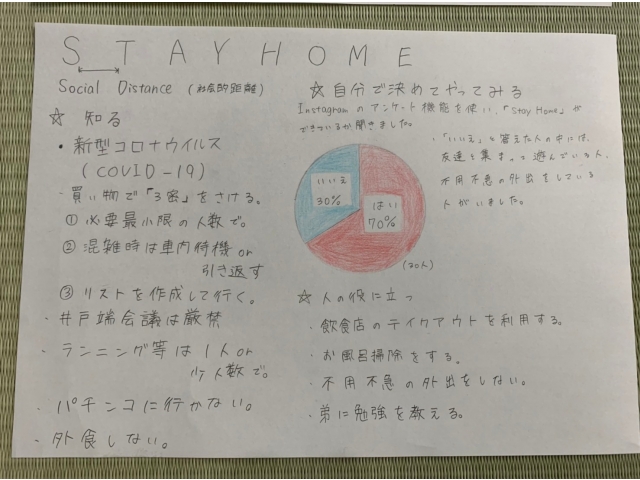 STAY HOME
Social Distance (社会的距離)
☆ 知る
・新型コロナウイルス
(COVID-19)
・買い物で「3密」をさける。
① 必要最小限の人数で。
② 混雑時は車内待機 or
引き返す
③ リストを作成して行く。
・井戸端会議は厳禁
・ランニング等は1人 or
少人数で。
・パチンコに行かない。
・外食しない。
☆ 自分で決めてやってみる
Instagramのアンケート機能を使い、「Stay Home」が
できているか聞きました。
いいえ
30%
はい
70%
(20人)
・「いいえ」と答えた人の中には、
友達と集まって遊んでいる人、
不用不急の外出をしている
人がいました。
☆ 人の役に立つ
・飲食店のテイクアウトを利用する。
・お風呂掃除をする。
・不用不急の外出をしない。
・弟に勉強を教える。